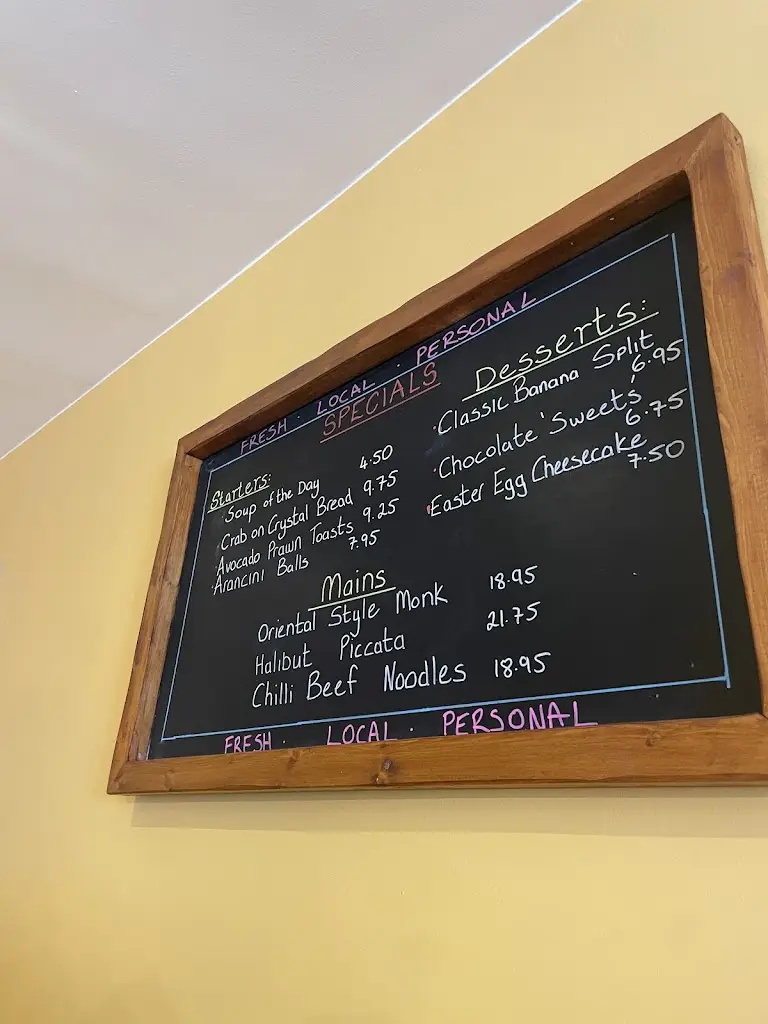 FRESH · LOCAL · PERSONAL
SPECIALS
Starters:
· Soup of the Day 4.50
Crab on Crystal Bread 9.75
· Avocado Prawn Toasts 9.25
· Arancini Balls 7.95
Mains
Oriental Style Monk 18.95
Halibut Piccata 21.75
Chilli Beef Noodles 18.95
Desserts:
· Classic Banana Split
6.95
· Chocolate 'Sweets'
6.75
· Easter Egg Cheesecake
7.50
FRESH · LOCAL · PERSONAL